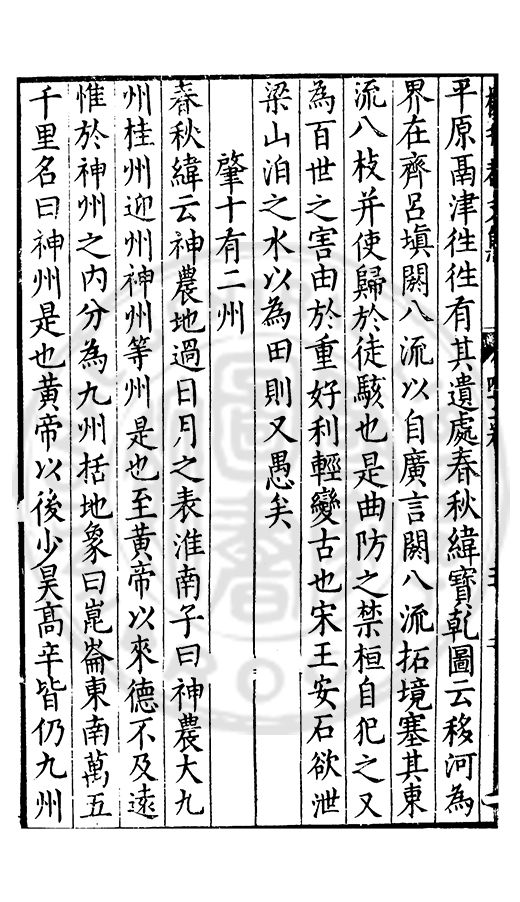 平原鬲津徃徃有其遺處春秋緯寶乾圖云移河為
界在齊呂填閼八流以自廣言閼八流拓境塞其東
流八枝并使歸於徒駭也是曲防之禁桓自犯之又
為百世之害由於重好利輕變古也宋王安石欲泄
梁山泊之水以為田則又愚矣
肇十有二州
春秋緯云神農地過日月之表淮南子曰神農大九
州桂州迎州神州等州是也至黃帝以來德不及遠
惟於神州之内分為九州括地象曰崑崙東南萬五
千里名曰神州是也黃帝以後少昊高辛皆仍九州